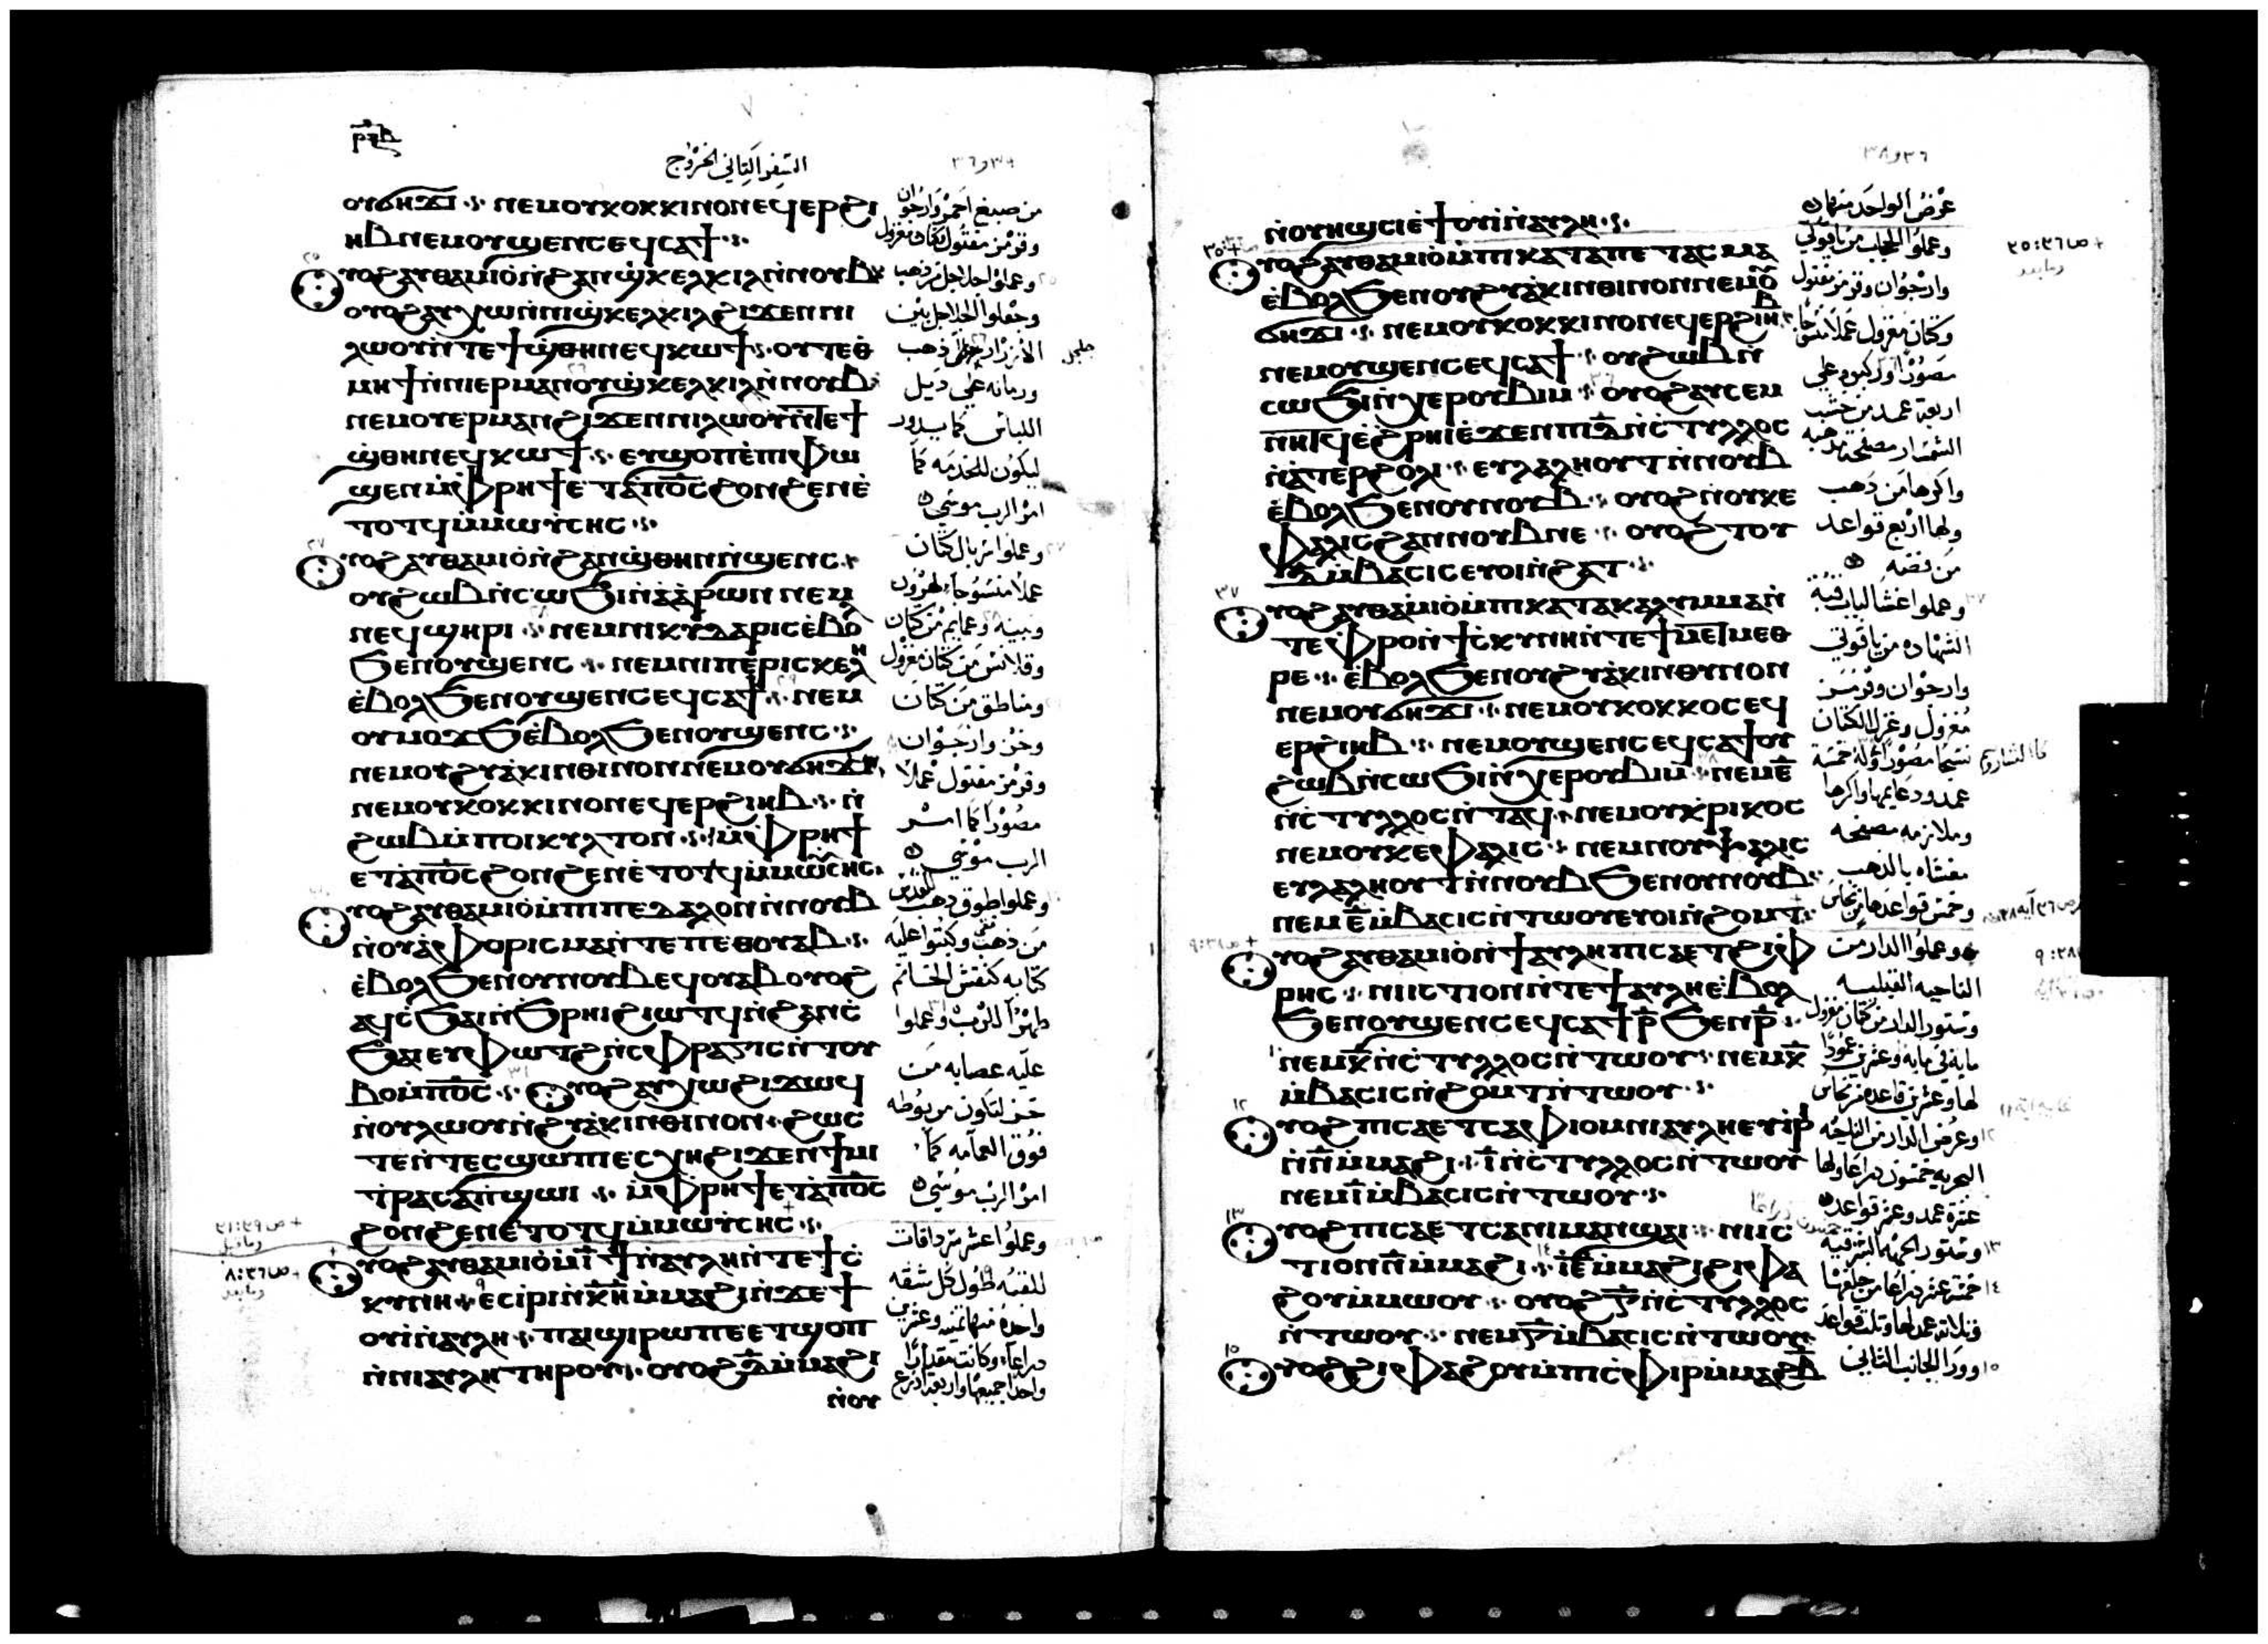 ⲣⲝⲃ
السفر الثاني الخروج
ⲟⲩϭⲏϫⲓ ⲛⲉⲙⲟⲩⲕⲟⲕⲕⲓⲛⲟⲛⲉϥⲉⲣϩⲓ
ⲏⲃⲛⲉⲙⲟⲩϣⲉⲛⲥⲉϥⲥⲁϯ
ⲩⲟϩⲁⲩⲑⲁⲙⲓⲟ̀ⲛ̀ϩⲁⲛϣ̀ⲕⲉⲗⲕⲓⲗⲛ̀ⲛⲟⲩⲃ
ⲟⲩⲟϩⲁⲩⲭⲱⲛ̀ⲛⲓϣ̀ⲕⲉⲗⲕⲓⲗϩⲓϫⲉⲛⲛⲓ
ⲗⲱⲟⲩⲛ̀ⲧⲉϯϣ̀ⲑⲏⲛⲉϥⲕⲱϯ ⲟⲩⲧⲉⲑ
ⲙⲏϯⲛ̀ⲛⲓⲉⲣⲙⲁⲛⲟⲩϣ̀ⲕⲉⲗⲕⲓⲗⲛ̀ⲛⲟⲩⲃ
ⲛⲉⲙⲟⲩⲉⲣⲙⲁⲛϩⲓϫⲉⲛⲛⲓⲗⲱⲟⲩⲛ̀ⲧⲉϯ
ϣ̀ⲑⲏⲛⲉϥⲕⲱϯ ⲉⲩϣⲟⲡⲉ̀ⲡⲓⲫⲱ
ϣⲉⲛⲙ̀ⲫⲣⲏϯⲉⲧⲁ̀ⲡⲟ̅ⲥ̅ϩⲟⲛϩⲉⲛⲉ̀
ⲧⲟⲧϥⲙ̀ⲙⲱⲩ̀ⲥⲏⲥ
ⲩⲟϩⲁⲩⲑⲁⲙⲓⲟ̀ⲛ̀ϩⲁⲛϣ̀ⲑⲏⲛⲛ̀ϣⲉⲛⲥ
ⲟⲩϩⲱⲃⲛ̀ⲥⲱϧⲓⲛ̀ⲁ̀ⲁ̀ⲣⲱⲛ ⲛⲉⲙ
ⲛⲉϥϣⲏⲣⲓ ⲛⲉⲙⲛⲓⲕⲩⲇⲁⲣⲓⲥⲉ̀ⲃⲟⲗ
ϧⲉⲛⲟⲩϣⲉⲛⲥ ⲛⲉⲙⲛⲓⲡⲉ̀ⲣⲓⲥⲕⲉⲗⲏ
ⲉ̀ⲃⲟⲗϧⲉⲛⲟⲩϣⲉⲛⲥⲉϥⲥⲁϯ ⲛⲉⲙ
ⲟⲩⲙⲟϫϧⲉ̀ⲃⲟⲗϧⲉⲛⲟⲩϣⲉⲛⲥ
ⲛⲉⲙⲟⲩϩⲩⲁ̀ⲕⲓⲛⲑⲓⲛⲟⲛⲛⲉⲙⲟⲩϭⲏϫⲓ
ⲛⲉⲙⲟⲩⲕⲟⲕⲕⲓⲛⲟⲛⲉϥⲉⲣϩⲓⲏⲃ ⲛ̀
ϩⲱⲃⲙ̀ⲡⲟⲓⲕⲩⲗⲧⲟⲛ ⲙ̀ⲫⲣⲏϯ
ⲉⲧⲁ̀ⲡⲟ̅ⲥ̅ϩⲟⲛϩⲉⲛⲉ̀ⲧⲟⲧϥⲙ̀ⲙⲱⲩ̀ⲥⲏⲥ
ⲩⲟϩⲁⲩⲑⲁⲙⲓⲟ̀ⲙ̀ⲡⲓⲡⲉⲇⲁⲗⲟⲛⲛ̀ⲛⲟⲩⲃ
ⲛ̀ⲟⲩⲁ̀ⲫⲟⲣⲓⲥⲙⲁⲛ̀ⲧⲉⲡⲉⲑⲟⲩⲁⲃ
ⲉ̀ⲃⲟⲗϧⲉⲛⲟⲩⲛⲟⲩⲃⲉϥⲟⲩⲁⲃⲟⲩⲟϩ
ⲁϥⲥ̀ϧⲁⲓⲛ̀ϧⲣⲏⲓϩⲓⲱⲧϥⲛ̀ϩⲁⲛⲥ̀
ϧⲁⲓⲉⲩⲫⲱⲧϩⲛ̀ⲥⲫⲣⲁⲅⲓⲥⲛ̀ⲧⲟⲩ
ⲃⲟⲙ̀ⲡⲟ̅ⲥ̅ ⲩⲟϩⲁⲩⲭⲱϩⲓϫⲱϥ
ⲛ̀ⲟⲩⲗⲱⲟⲩⲛ̀ϩⲩⲁ̀ⲕⲓⲛⲑⲓⲛⲟⲛ ϩⲱⲥ
ⲧⲉⲛ̀ⲧⲉⲥϣⲱⲡⲉⲥⲭⲏϩⲓϫⲉⲛϯⲙⲓ
ⲧ̀ⲣⲁⲥⲁⲛ̀ϣⲱⲓ ⲙ̀ⲫⲣⲏϯⲉⲧⲁ̀ⲡⲟ̅ⲥ̅
ϩⲟⲛϩⲉⲛⲉ̀ⲧⲟⲧϥⲙ̀ⲙⲱⲩ̀ⲥⲏⲥ
ⲩⲟϩⲁⲩⲑⲁⲙⲓⲟ̀ⲙ̀ⲓ̅ϯⲛ̀ⲁⲩⲗⲏⲛ̀ⲧⲉϯⲥ̀
ⲕⲩⲛⲏ ⲉⲥⲓⲣⲓⲛ̀ⲕ̅ⲏ̅ⲙ̀ⲙⲁϩⲓⲛ̀ϫⲉϯ
ⲟⲩⲓ̀ⲛ̀ⲁⲩⲗⲏ ⲡⲁⲓϣⲓⲣⲱⲡⲉⲉⲧϣⲟⲡ
ⲛ̀ⲛⲓⲁⲩⲗⲏⲧⲏⲣⲟⲩ ⲟⲩⲟϩⲇ̅ⲙ̀ⲙⲁϩⲓ
ⲛ̀ⲟⲩ
من صبغ احمر وارجوان
وقرمز مفتول وكتان مغزول
وعملوا اجلاجل من ذهب
وجعلوا الجلاجل بين
جلجل
ورمانه علي ديل
اللباس كما يدور
ليكون للخدمه كما
امر الرب موسي
وعملوا سربال كتان
عملا منسوجا لهرون
وبنيه وعمايم من كتان
وقلانس من كتان مغزول
ومناطق من كتان
وخز وارجوان
وقرمز مفتول عملا
مصورا كما امر
الرب موسي
من ذهب نقي وكتبوا عليه
كتابه كنقش الخاتم
طهرا للرب وعملوا
عليه عصابه من
خز لتكون مربوطه
فوق العمامه كما
امر الرب موسي
وعملوا عشر سرداقات
للقبه طول كل شقه
واحده منها تمنيه وعشرين
دراعا وكانت مقدارا
واحدا جميعها واربعة ادرع
ⲛ̀ⲟⲩⲏϣⲥⲓⲉ̀ϯⲟⲩⲓ̀ⲛ̀ⲁⲩⲗⲏ
ⲩⲟϩⲁⲩⲑⲁⲙⲓⲟ̀ⲙ̀ⲡⲓⲕⲁⲧⲁⲡⲉⲧⲁⲥⲙⲁ
ⲉ̀ⲃⲟⲗϧⲉⲛⲟⲩϩⲩⲁ̀ⲕⲓⲛⲑⲓⲛⲟⲛⲛⲉⲙⲟⲩ
ϭⲏϫⲓ ⲛⲉⲙⲟⲩⲕⲟⲕⲕⲓⲛⲟⲛⲉϥⲉⲣϩⲓⲏⲃ
ⲛⲉⲙⲟⲩϣⲉⲛⲥⲉϥⲥⲁϯ ⲟⲩϩⲱⲃⲛ̀
ⲥⲱϧⲓⲛ̀ⲭⲉⲣⲟⲩⲃⲓⲙ ⲟⲩⲟϩⲁⲩⲥⲉⲙ
ⲛⲏⲧϥⲉ̀ϩⲣⲏⲓⲉ̀ϫⲉⲛⲡⲓⲇ̅ⲛ̀ⲥ̀ⲧⲩⲗⲗⲟⲥ
ⲛ̀ⲁ̀ⲧⲉⲣϩⲟⲗⲓ ⲉⲩⲗⲁⲗⲏⲟⲩⲧⲛ̀ⲛⲟⲩⲃ
ⲉ̀ⲃⲟⲗϧⲉⲛⲟⲩⲛⲟⲩⲃ ⲟⲩⲟϩⲛ̀ⲟⲩⲕⲉ
ⲫⲁⲗⲓⲥϩⲁⲛⲛⲟⲩⲃⲛⲉ ⲟⲩⲟϩⲧⲟⲩ
ⲇ̅ⲙ̀ⲃⲁⲥⲓⲥⲉⲩⲟⲓⲛ̀ϩⲁⲧ
ⲩⲟϩⲁⲩⲑⲁⲙⲓⲟ̀ⲙ̀ⲡⲓⲕⲁⲧⲁⲕⲁⲗⲩⲙⲙⲁⲛ̀
ⲧⲉⲫⲣⲟⲛ̀ϯⲥ̀ⲕⲩⲛⲏⲛ̀ⲧⲉϯⲙⲉⲧⲙⲉⲑ
ⲣⲉ ⲉ̀ⲃⲟⲗϧⲉⲛⲟⲩϩⲩⲁ̀ⲕⲓⲛⲑⲩⲛⲟⲛ
ⲛⲉⲙⲟⲩϭⲏϫⲓ ⲛⲉⲙⲟⲩⲕⲟⲕⲕⲟⲥⲉϥ
ⲉⲣϩⲓⲏⲃ ⲛⲉⲙⲟⲩϣⲉⲛⲥⲉϥⲥⲁϯⲟⲩ
ϩⲱⲃⲛ̀ⲥⲱϧⲓⲛ̀ⲭⲉⲣⲟⲩⲃⲓⲙ ⲛⲉⲙⲉ̅
ⲛ̀ⲥ̀ⲧⲩⲗⲗⲟⲥⲛ̀ⲧⲁϥ ⲛⲉⲙⲟⲩⲕ̀ⲣⲓⲕⲟⲥ
ⲛⲉⲙⲟⲩⲕⲉⲫⲁⲗⲓⲥ ⲛⲉⲙⲛⲟⲩⲯⲁⲗⲓⲥ
ⲉⲩⲗⲁⲗⲏⲟⲩⲧⲛ̀ⲛⲟⲩⲃϧⲉⲛⲟⲩⲛⲟⲩⲃ
ⲛⲉⲙⲉ̅ⲙ̀ⲃⲁⲥⲓⲥⲛ̀ⲧⲱⲟⲩⲉⲩⲟⲓⲛ̀ϩⲟⲙⲧ
ⲩⲟϩⲁⲩⲑⲁⲙⲓⲟ̀ⲛ̀ϯⲁⲩⲗⲏⲡⲓⲥⲁⲉⲧϩⲓⲫ
ⲣⲏⲥ ⲛⲓⲓⲥⲧⲓⲟⲛⲛ̀ⲧⲉϯⲁⲩⲗⲏⲉ̀ⲃⲟⲗ
ϧⲉⲛⲟⲩϣⲉⲛⲥⲉϥⲥⲁϯⲣ̅ϧⲉⲛⲣ̅
ⲛⲉⲙⲕ̅ⲛ̀ⲥ̀ⲧⲩⲗⲗⲟⲥⲛ̀ⲧⲱⲟⲩ ⲛⲉⲙⲕ̅
ⲙ̀ⲃⲁⲥⲓⲥⲛ̀ϩⲟⲙⲧⲛ̀ⲧⲱⲟⲩ
ⲩⲟϩⲡⲓⲥⲁⲉⲧⲥⲁⲫⲓⲟⲙⲛⲓⲁⲩⲗⲏⲉⲩⲓ̀ⲣⲓ
ⲛ̀ⲛ̅ⲙ̀ⲙⲁϩⲓ ⲓ̅ⲛ̀ⲥ̀ⲧⲩⲗⲗⲟⲥⲛ̀ⲧⲱⲟⲩ
ⲛⲉⲙⲓ̅ⲙ̀ⲃⲁⲥⲓⲥⲛ̀ⲧⲱⲟⲩ
ⲩⲟϩⲡⲓⲥⲁⲉⲧⲥⲁⲛⲓⲙⲁⲛϣⲁⲓ ⲛⲓⲓⲥ
ⲧⲓⲟⲛⲛ̅ⲙ̀ⲙⲁϩⲓ ⲓ̅ⲉ̅ⲙ̀ⲙⲁϩⲓϩⲓⲫⲁ
ϩⲟⲩⲙ̀ⲙⲱⲟⲩ ⲟⲩⲟϩⲅ̅ⲛ̀ⲥ̀ⲧⲩⲗⲗⲟⲥ
ⲛ̀ⲧⲱⲟⲩ ⲛⲉⲙⲅ̅ⲙ̀ⲃⲁⲥⲓⲥⲛ̀ⲧⲱⲟⲩ
ⲩⲟϩϩⲓⲫⲁϩⲟⲩⲙ̀ⲡⲓⲥ̀ⲫⲓⲣⲙ̀ⲙⲁϩⲃ̅
عرض الواحد منها
وارجوان وقرمز مفتول
وكتان مغزول عملا منسوجا
اربعة عمد من خشب
واكرها من ذهب
ولها اربع قواعد
من فضه
وعملوا غشا لباب قبة
الشهاده من ياقوتي
وارجوان وقرمز
مغزول وغزل الكتان
وملازمه مصفحه
مغشاه بالذهب
وخمس قواعدها من نحاس
وعملوا الدار من
الناحيه القبليه
وستور الدار من كتان مغزول
مايه في مايه وعشرين عمودا
لها وعشرين قاعده من نحاس
وعرض الدار من الناحيه
البحريه خمسون دراعا ولها
عشرة عمد وعشر قواعد
وستور الجهه الشرقيه
وتلاته عمد لها وتلت قواعد
وورا الجانب الثاني